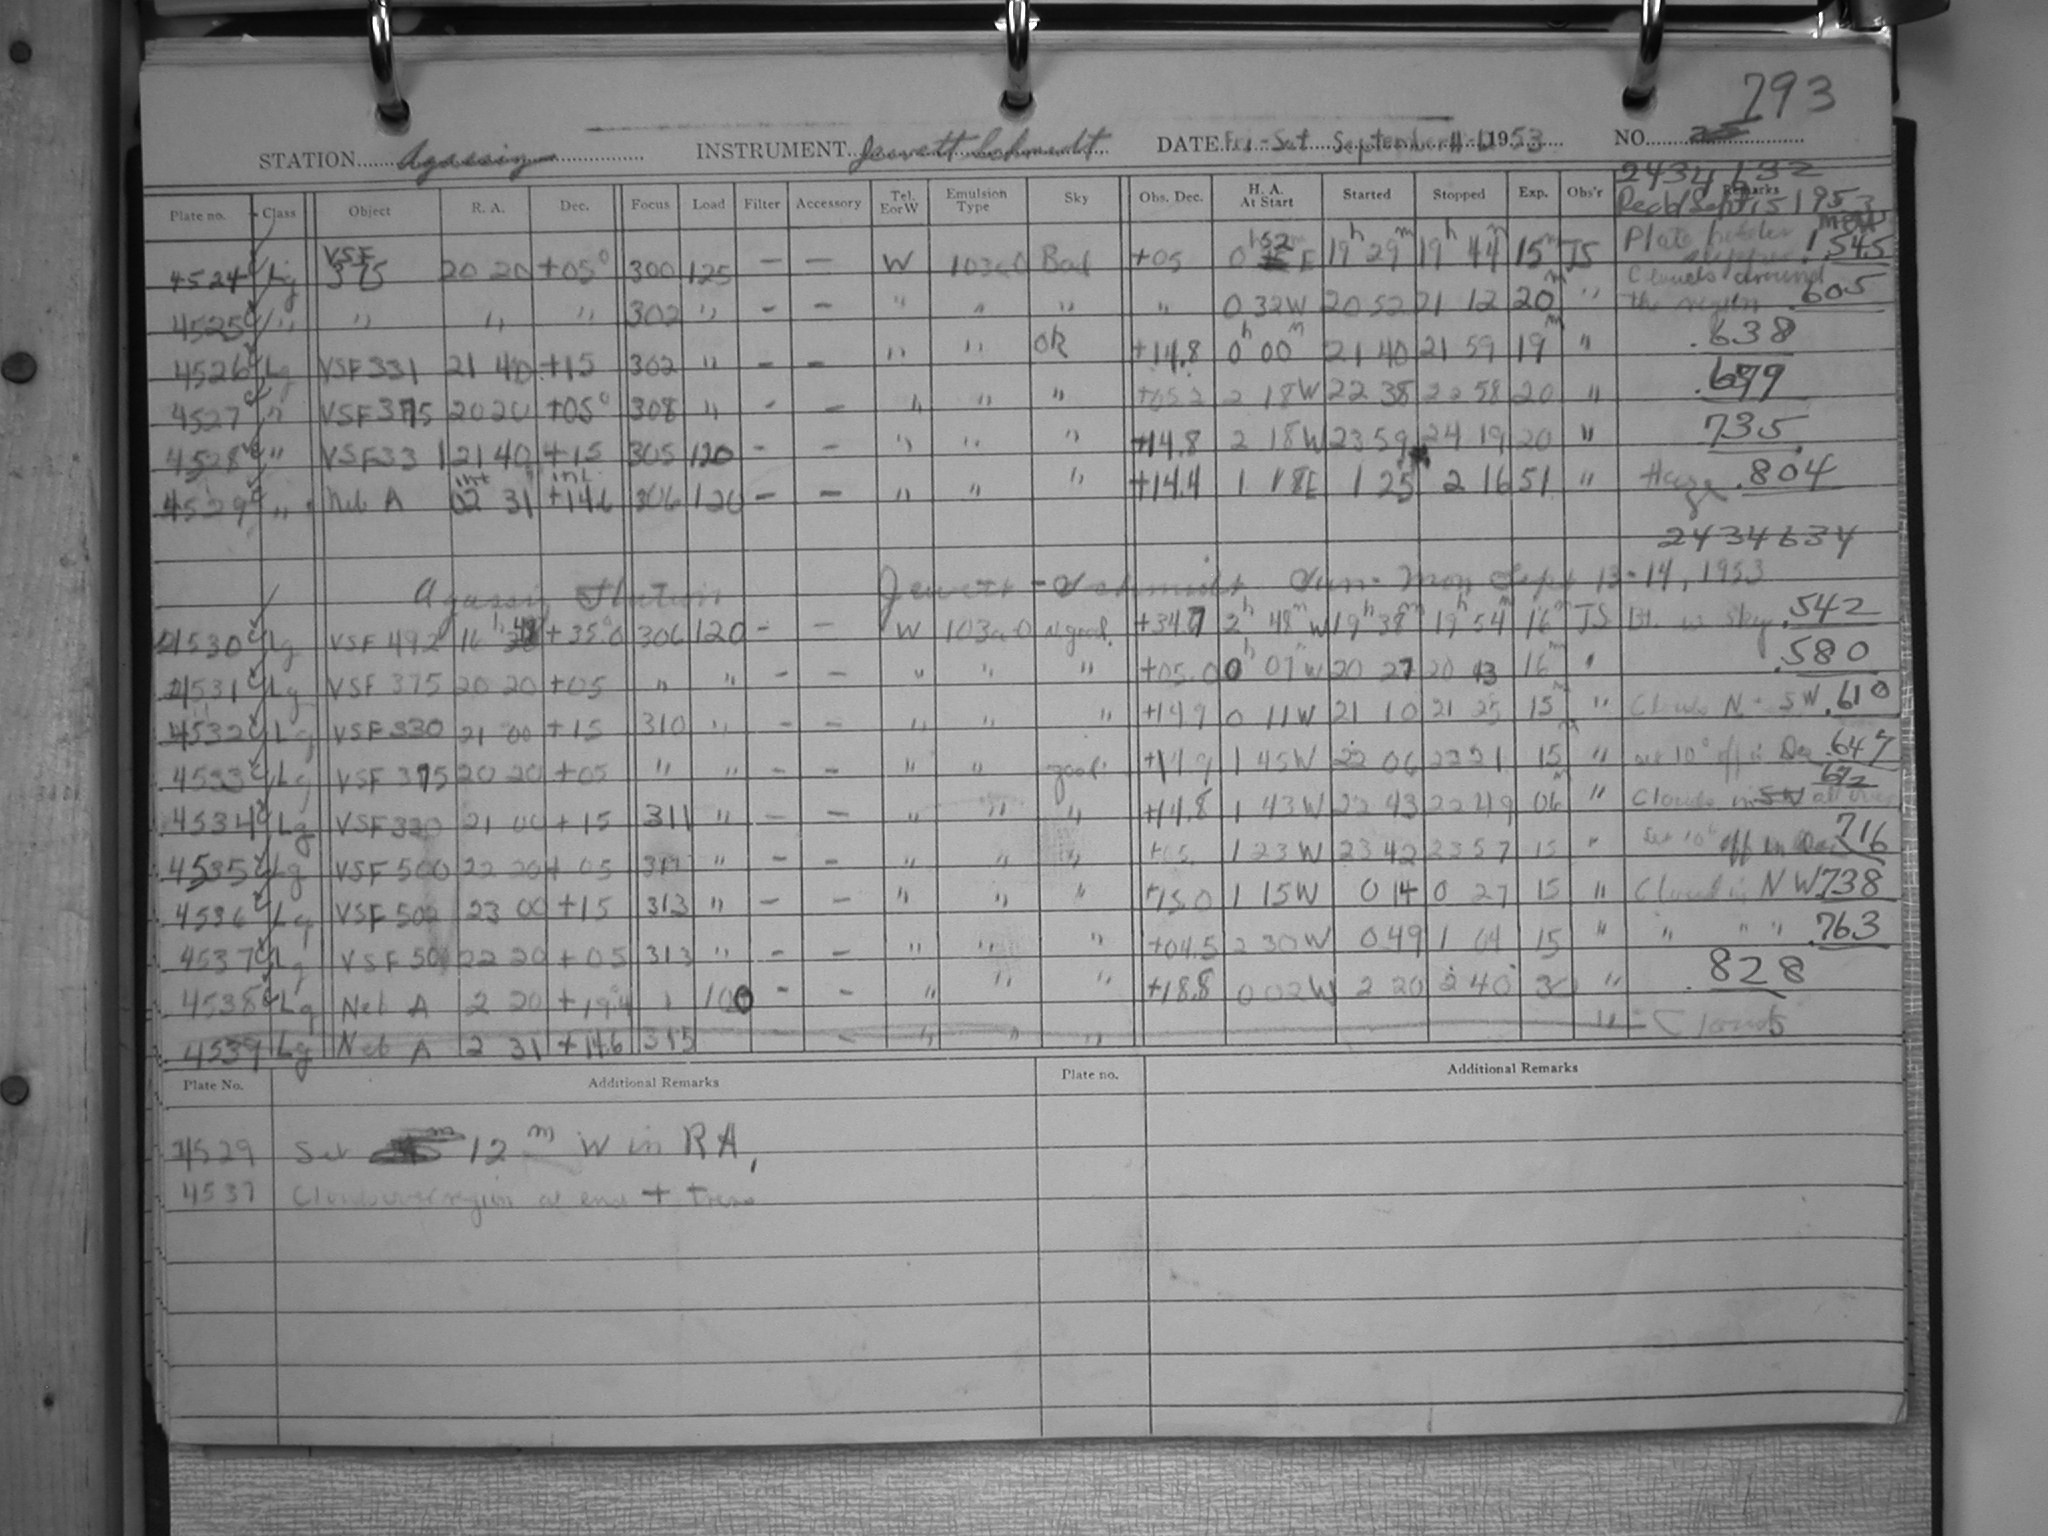 793
STATION Agassiz INSTRUMENT Jewett Schmidt DATE Fri-Sat September 11-12 1953 NO.
2434132
Plate no. Class Object R. A. Dec. Focus Load Filter Accessory Tel. E or W Emulsion Type Sky Obs. Dec. H. A. At Start Started Stopped Exp. Obs'r Remarks
Rec'd Sept 15 1953
4524 Lg VSF 375 20 20 +05° 300 125 - - W 103a0 Bad +05 0 52 E 19h 29m 19h 44m 15m JS Plate holder .545
4525 " " " " 302 " - - " " " " 0 32W 20 52 21 12 20m " Clouds around the region .605
4526 Lg VSF 331 21 40 +15 302 " - - " " OK +14.8 0h 00m 21 40 21 59 19m " .638
4527 " VSF 375 20 20 +05° 308 " - - " " " +05.2 2 18W 22 38 22 58 20 " .699
4528 " VSF 331 21 40 +15 305 120 - - " " " +14.8 2 18W 23 59 24 19 20 " 735
4529 " Neb A 02 31 +14.6 306 120 - - " " " +14.4 1 18E 1 25 2 16 51 " Haze .804
2434634
Agassiz Station Jewett-Schmidt Sun-Mon Sept 13-14, 1953
4530 Lg VSF 492 16h +35°0 306 120 - - W 103a0 +34.7 2h 48m W 19h 38m 19h 54m 16m JS sky .542
4531 Lg VSF 375 20 20 +05 " " - - " " " +05.0 0h 07m W 20 27 20 43 16m " .580
4532 Lg VSF 330 21 00 +15 310 " - - " " " +14.9 0 11W 21 10 21 25 15m " Clouds N + SW .610
4533 Lg VSF 375 20 20 +05 " " - - " " good +14.9 1 45W 22 06 22 21 15m " set 10° off in Dec .647
4534 Lg VSF 330 21 00 +15 311 " - - " " " +14.8 1 43W 22 43 22 49 06m " Clouds in 672
4535 Lg VSF 500 22 20 +05 " - - " " " +05. 1 23W 23 42 23 57 15 " Set 10° off in Dec 716
4536 Lg VSF 502 23 00 +15 313 " - - " " " +15.0 1 15W 0 14 0 27 15 " Cloud in NW 738
4537 Lg VSF 500 22 20 +05 313 " - - " " " +04.5 2 30W 0 49 1 04 15 " " " " .763
4538 Lg Neb A 2 20 +19.4 100 - - " " " +18.8 0 02W 2 20 2 40 " .828
4539 Lg Neb A 2 31 +14.6 315 " " " " - Clouds
Plate No. Additional Remarks Plate no. Additional Remarks
4529 Set 12m W in RA,
4537 Clouds over region at end + trees